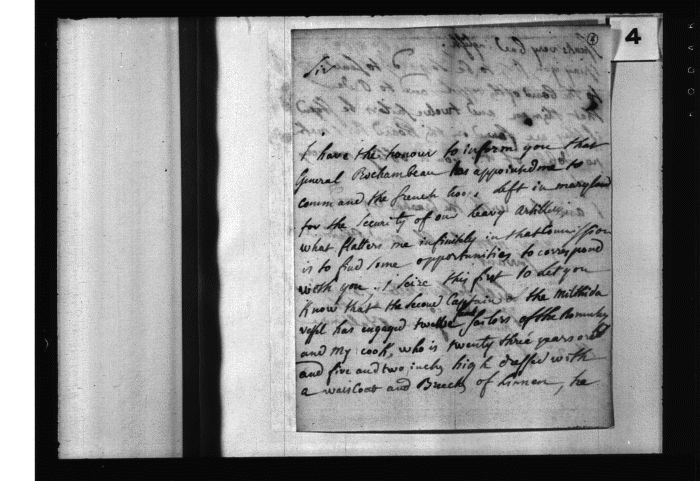 4
4
Sir
I have the honour to inform you that
General Rochambeau has appointed me to
command the french troops left in maryland
for the security of our heavy artillery
what flatters me infinitely in that Commission
is to find some opportunities to correspond
with you. I seize this first to let you
Know that the second Captain of the
vessel has engaged twelve sailors of the Romuley
and my cook, who is twenty three years old
and five and two inches high dressed with
a waiscoat and Breech of linnen, he